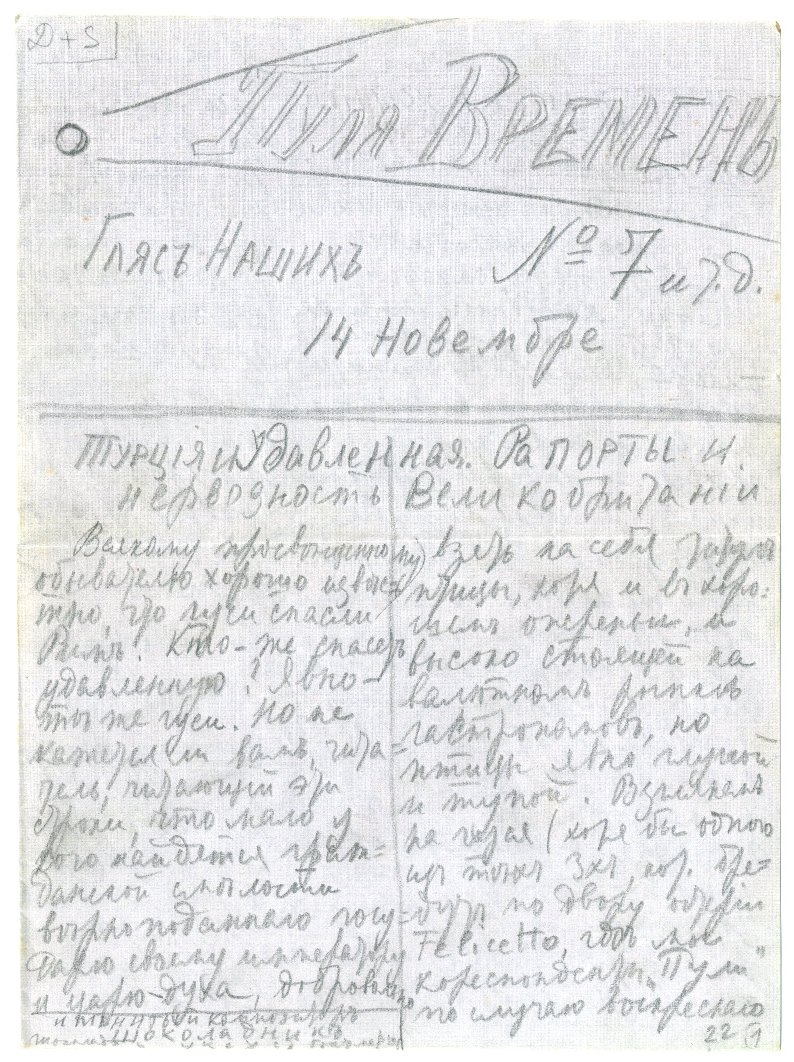 D + S
Пуля Времень
Глясъ Нашихъ
№ 7 и т. д.
14 Новембре
Турція и Удавленная. Рапорты и
нервозность Великобританіи
Всякому просвѣщенному
обывателю хорошо извѣст
но, что гуси спасли
Римъ! Кто-же спасетъ
удавленную? Явно-
тѣ же гуси. Но не
кажется ли вамъ, чита=
тель, читающій эти
строки, что мало у
кого найдется граж=
данской смѣлости
вѣрноподданнаго госу=
дарю своему императору
и царю-духа, добровольно
взять на себя
птицы, хоря и въ хоро=
шемъ опереньи, и
высоко стоящей на
валютномъ рынкѣ
гастрономовъ, но
птицы явно глупой
и тупой. Взглянемъ
на гуся (хоря бы одного
изъ тѣхъ 3хъ, кор. бре=
дутъ по двору остеріи
Felicetto, гдѣ мы
кореспонденты „Пули“
по случаю воскреснаго
шоколадникъ
22 (1